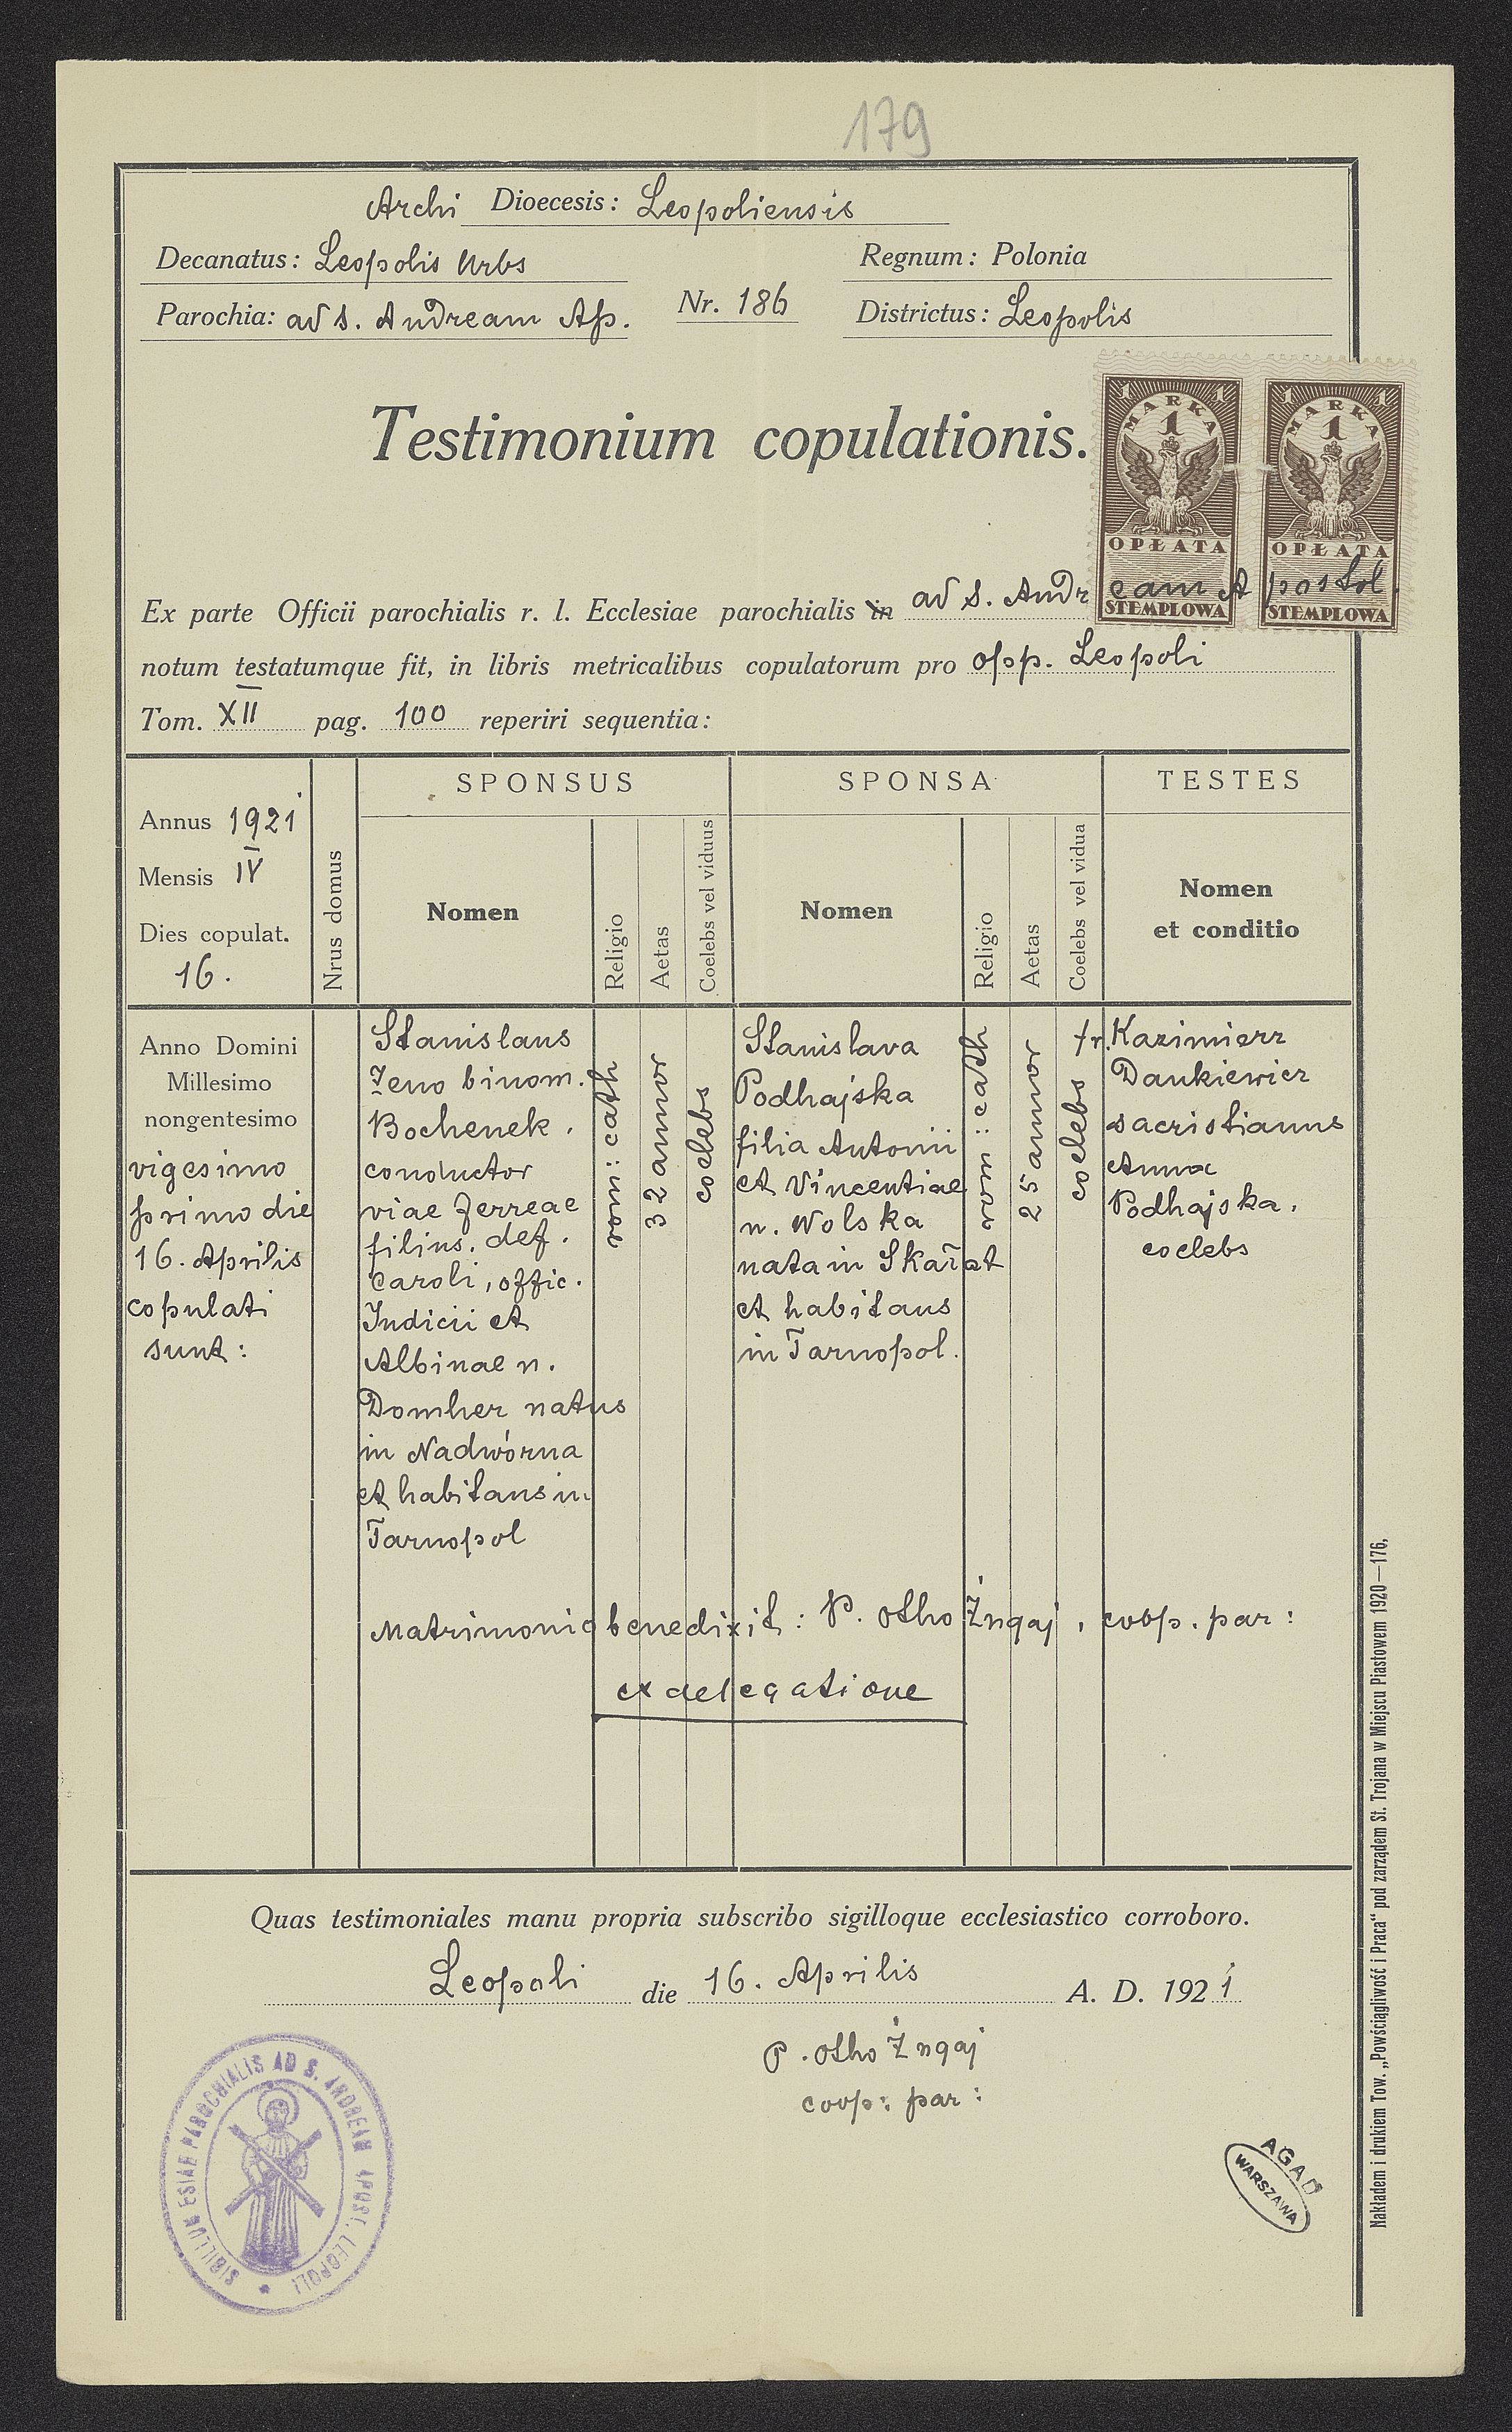 179
Archi Dioecesis: Leopoliensis
Decanatus: Leopolis Urbs
Regnum: Polonia
Parochia: ad s. Andream Ap.
Nr. 186
Districtus: Leopolis
Testimonium copulationis.
1 MARKA 1
1
OPŁATA
STEMPLOWA
1 MARKA 1
1
OPŁATA
STEMPLOWA
Ex parte Officii parochialis r. l. Ecclesiae parochialis in ad s. Andream Apostol.
notum testatumque fit, in libris metricalibus copulatorum pro opp. Leopoli
Tom. XII pag. 100 reperiri sequentia:
Annus 1921
Mensis IV
Dies copulat.
16.
Nrus domus
SPONSUS
Nomen
Religio
Aetas
Coelebs vel viduus
SPONSA
Nomen
Religio
Aetas
Coelebs vel vidua
TESTES
Nomen
et conditio
Anno Domini
Millesimo
nongentesimo
vigesimo
primo die
16. Aprilis
copulati
sunt:
Stanislaus
Zeno binom.
Bochenek,
conductor
viae ferreae
filius. def.
Caroli, offic.
Iudicii et
Albinae n.
Domher natus
in Nadwórna
et habitans in
Tarnopol
rom: cath
32 annor
coelebs
Stanislava
Podhajska
filia Antonii
et Vincentiae
n. Wolska
nata in Skałat
et habitans
in Tarnopol.
rom: cath
25 annor
coelebs
Kazimierz
Dankiewicz
sacristianus
Anna
Podhajska.
coelebs
Matrimonio benedixit: P. Otho Żngaj, coop. par:
ex delegatione
Quas testimoniales manu propria subscribo sigilloque ecclesiastico corroboro.
Leopoli die 16. Aprilis A. D. 1921
P. Otho Żngaj
coop: par:
SIGILLUM ECCLESIAE PAROCHIALIS AD S. ANDREAM APOST. LEOPOLI
AGAD
WARSZAWA
Nakładem i drukiem Tow. „Powściągliwość i Praca" pod zarządem St. Trojana w Miejscu Piastowem 1920—176.